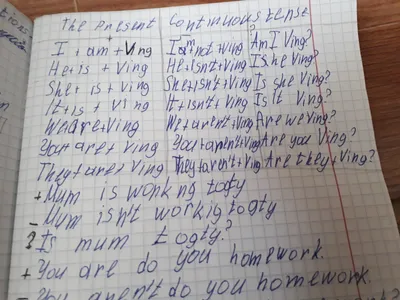 The Present Continuous tense
I + am + Ving I amn't + Ving Am I Ving?
He + is + Ving He + isn't + Ving Is he Ving?
She + is + Ving She + isn't + Ving Is she Ving?
It + is + Ving It + isn't + Ving Is it Ving?
We are + Ving We + aren't + Ving Are we Ving?
You + are + Ving You + aren't + Ving Are you Ving?
They + are + Ving They + aren't + Ving Are they + Ving?
+ Mum is workng togty
- Mum isn't workig togty
? Is mum togty?
+ You are do you homework.
- You aren't do you homework.